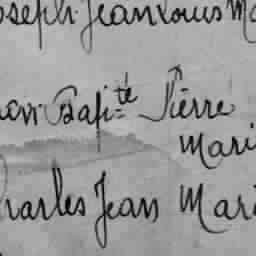 Joseph Jean Louis Ma
Bap.te Pierre
Mari
Charles Jean Mari